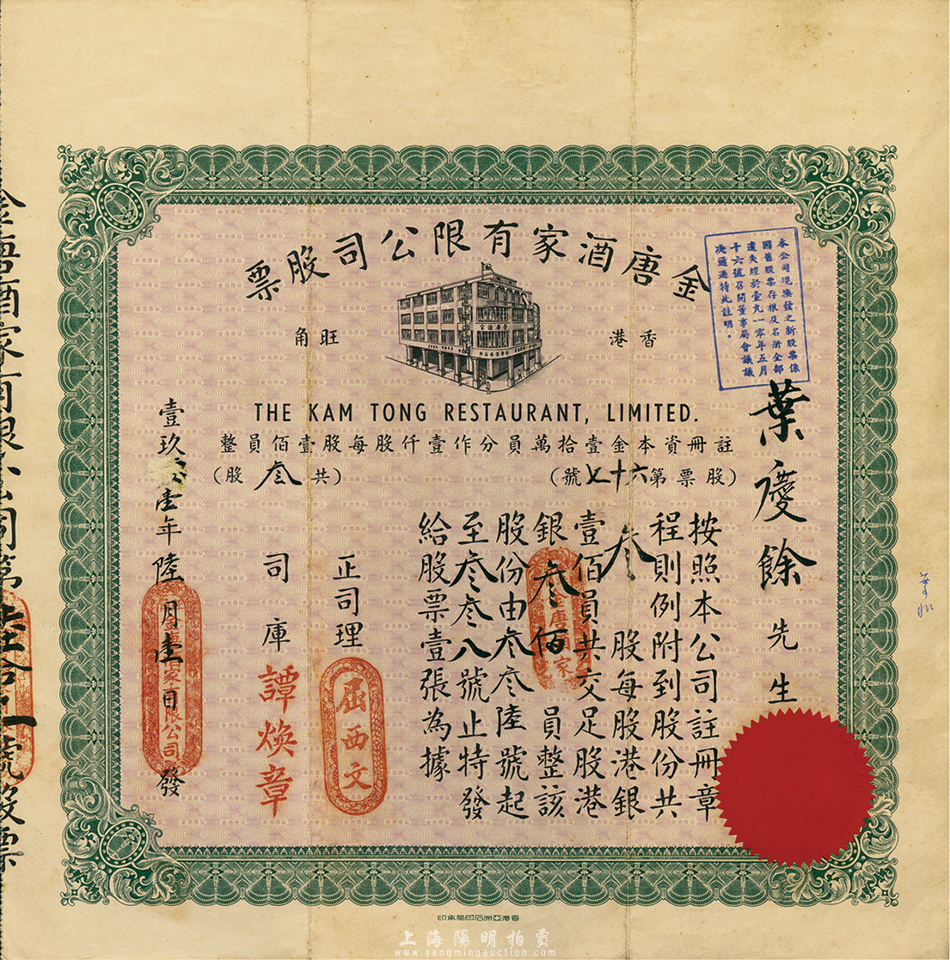 金唐酒家有限公司股票
香港 旺角
THE KAM TONG RESTAURANT, LIMITED.
註冊資本金壹拾萬員分作壹仟股每股壹佰員整
(股票第六十七號)
(共叁股)
本公司現換發之新股票係
因舊股票存根及名冊全部
遺失經於壹九一零年五月
十六號召開董事局會議議
決通過特此註明。
葉慶餘先生
按照本公司註冊章
程則例附到股份共
叁股每股港銀
壹佰員共交足股港
銀叁佰員整該
股份由叁叁陸號起
至叁叁八號止特發
給股票壹張為據
正司理
屈西文
司庫
譚煥章
壹玖壹年陸月壹日發
金唐酒家有限公司第號股票
香港亞洲石印局承印
上海陽明拍賣
www.yangmingauction.com